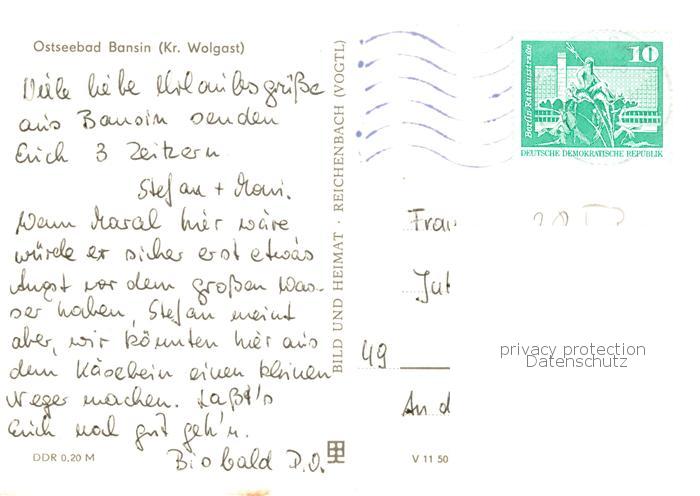 Ostseebad Bansin (Kr. Wolgast)
Viele liebe Urlaubsgrüße
aus Bansin senden
Euch 3 Zeitzern
Stefan + Moni.
Wenn Maral hier wäre
würde er sicher erst etwas
Angst vor dem großen Was-
ser haben, Stefan meint
aber, wir könnten hier aus
dem Käsebein einen kleinen
Neger machen. Laßt's
Euch mal gut geh'n.
Bis bald D.O.
DDR 0,20 M
BILD UND HEIMAT · REICHENBACH (VOGTL)
V 11 50
10
Berlin Rathausstraße
DEUTSCHE DEMOKRATISCHE REPUBLIK
49
An d
privacy protection
Datenschutz